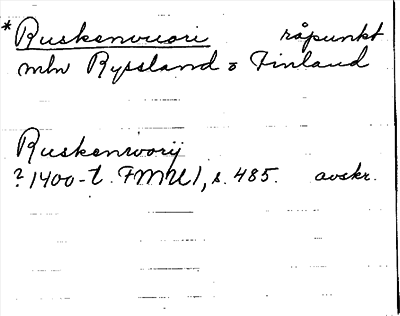 * Ruskenvuori råpunkt
mln Ryssland o Finland
Ruskenworij
? 1400-t. FMU I, s. 485. avskr.